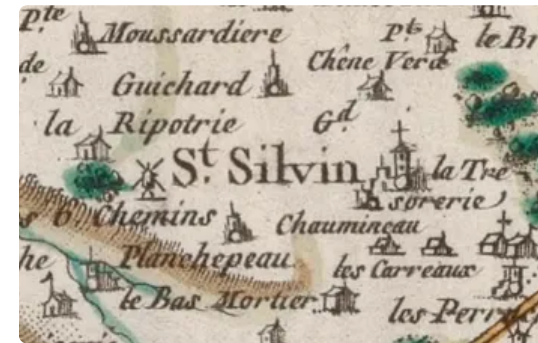 Pte
Moussardiere
Pt le Br
de
Chêne Verd
Guichard
la Ripotrie
Gd
St. Silvin
la Tre
sorerie
s 6 Chemins
Chaumineau
he
Planchepeau
les Carreaux
le Bas Mortier
les Perru